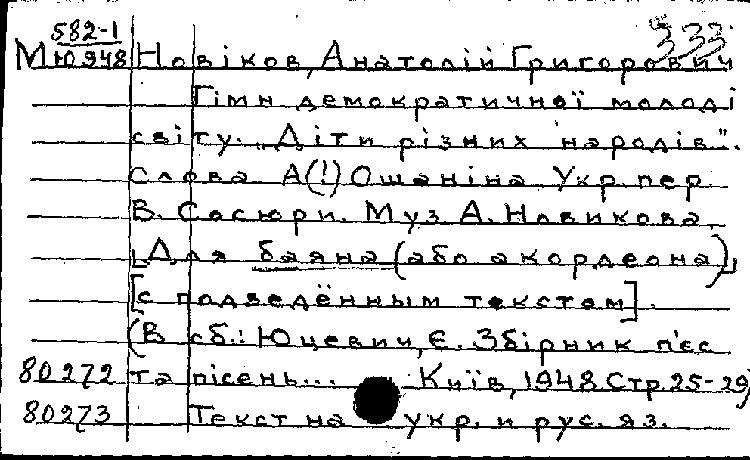 582-1
333
МЮ948 Новіков, Анатолій Григорович
Гімн демократичної молоді
світу. „Діти різних народів".
Слова А(!) Ошаніна Укр. пер.
В. Сосюри. Муз А. Новикова.
[Для баяна (або акордеона),
[с подведённым текстом].
(В сб.: Юцевич, Є. Збірник п'єс
80272 та пісень... Київ, 1948. Стр. 25-29)
80273 Текст на укр. и рус. яз.